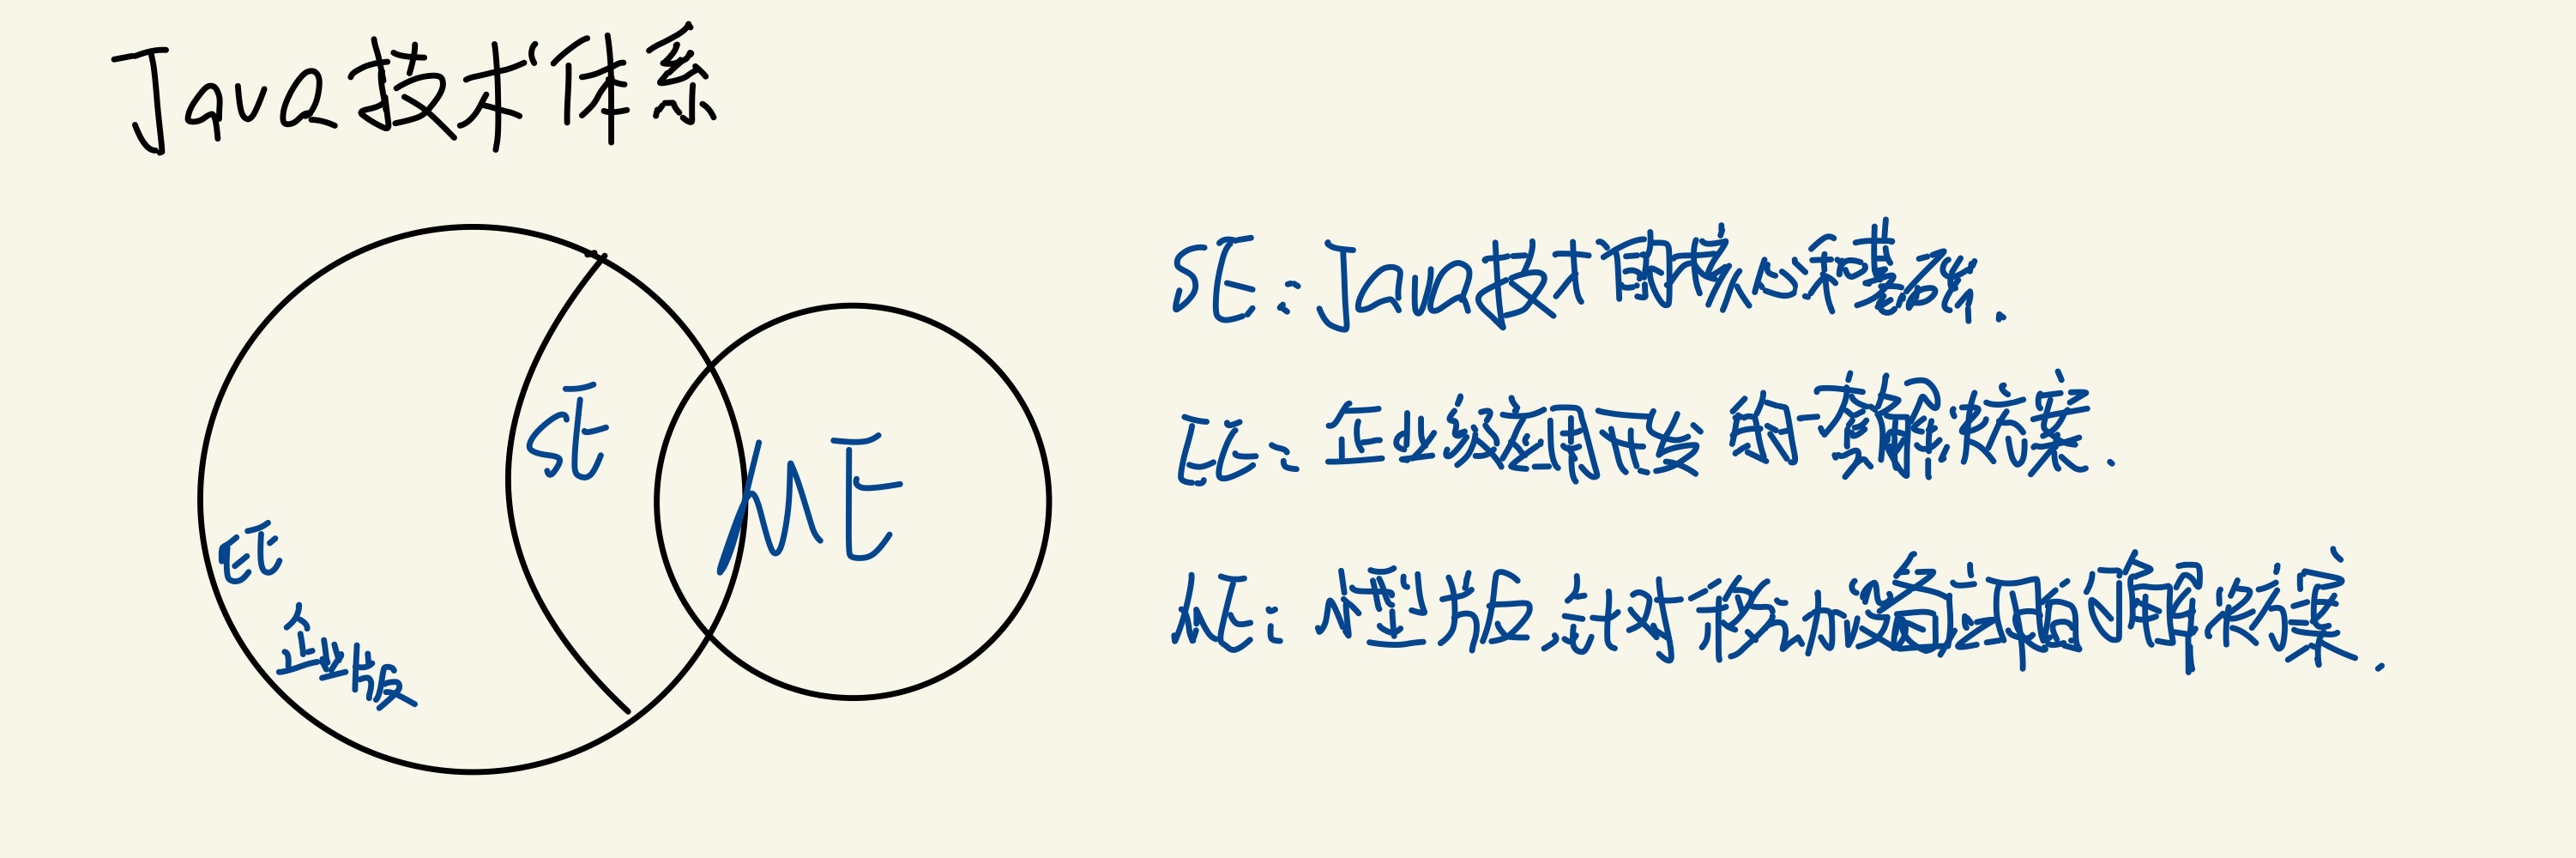 Java技术体系
SE
ME
EE
企业版
SE：Java技术的核心和基础.
EE：企业级应用开发的一套解决方案.
ME：小型版，针对移动设备应用的解决方案.